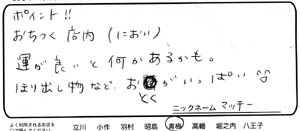 ポイント!!
おちつく店内(におい)
運が良いと何かあるかも。
ほり出し物など、おとくがいっぱい
ニックネーム マッチー
よく利用されるお店を
立川 小作 羽村 昭島 青梅 高幡 堀之内 八王子